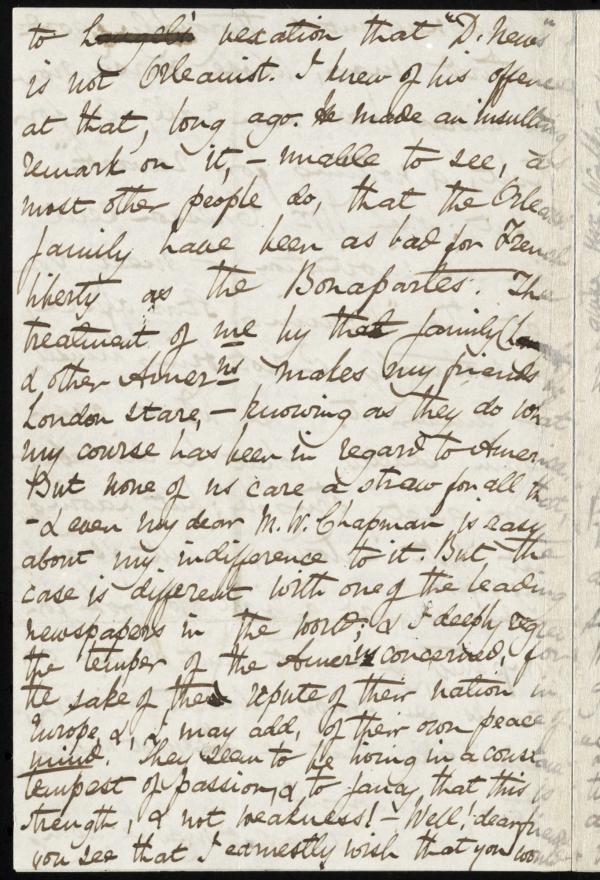 to Laugel's vexation that "D. News"
is not Orleanist. I knew of his offence
at that, long ago. He made an insulting
remark on it, – unable to see, as
most other people do, that the Orleans
family have been as bad for French
liberty as the Bonapartes. The
treatment of me by that family
& other Amerns makes my friends
London stare, – knowing as they do what
my course has been in regard to Amer
But none of us care a straw for all that,
– & even my dear M. W. Chapman is easy
about my indifference to it. But the
case is different with one of the leading
newspapers in the world; & I deeply regret
the temper of the Amerns concerned, for
the sake of the repute of their nation in
Europe, & I may add, of their own peace of
mind. They seem to be living in a
tempest of passion, & to fancy that this is
strength, & not weakness! – Well! dear friend
you see that I earnestly wish that you would